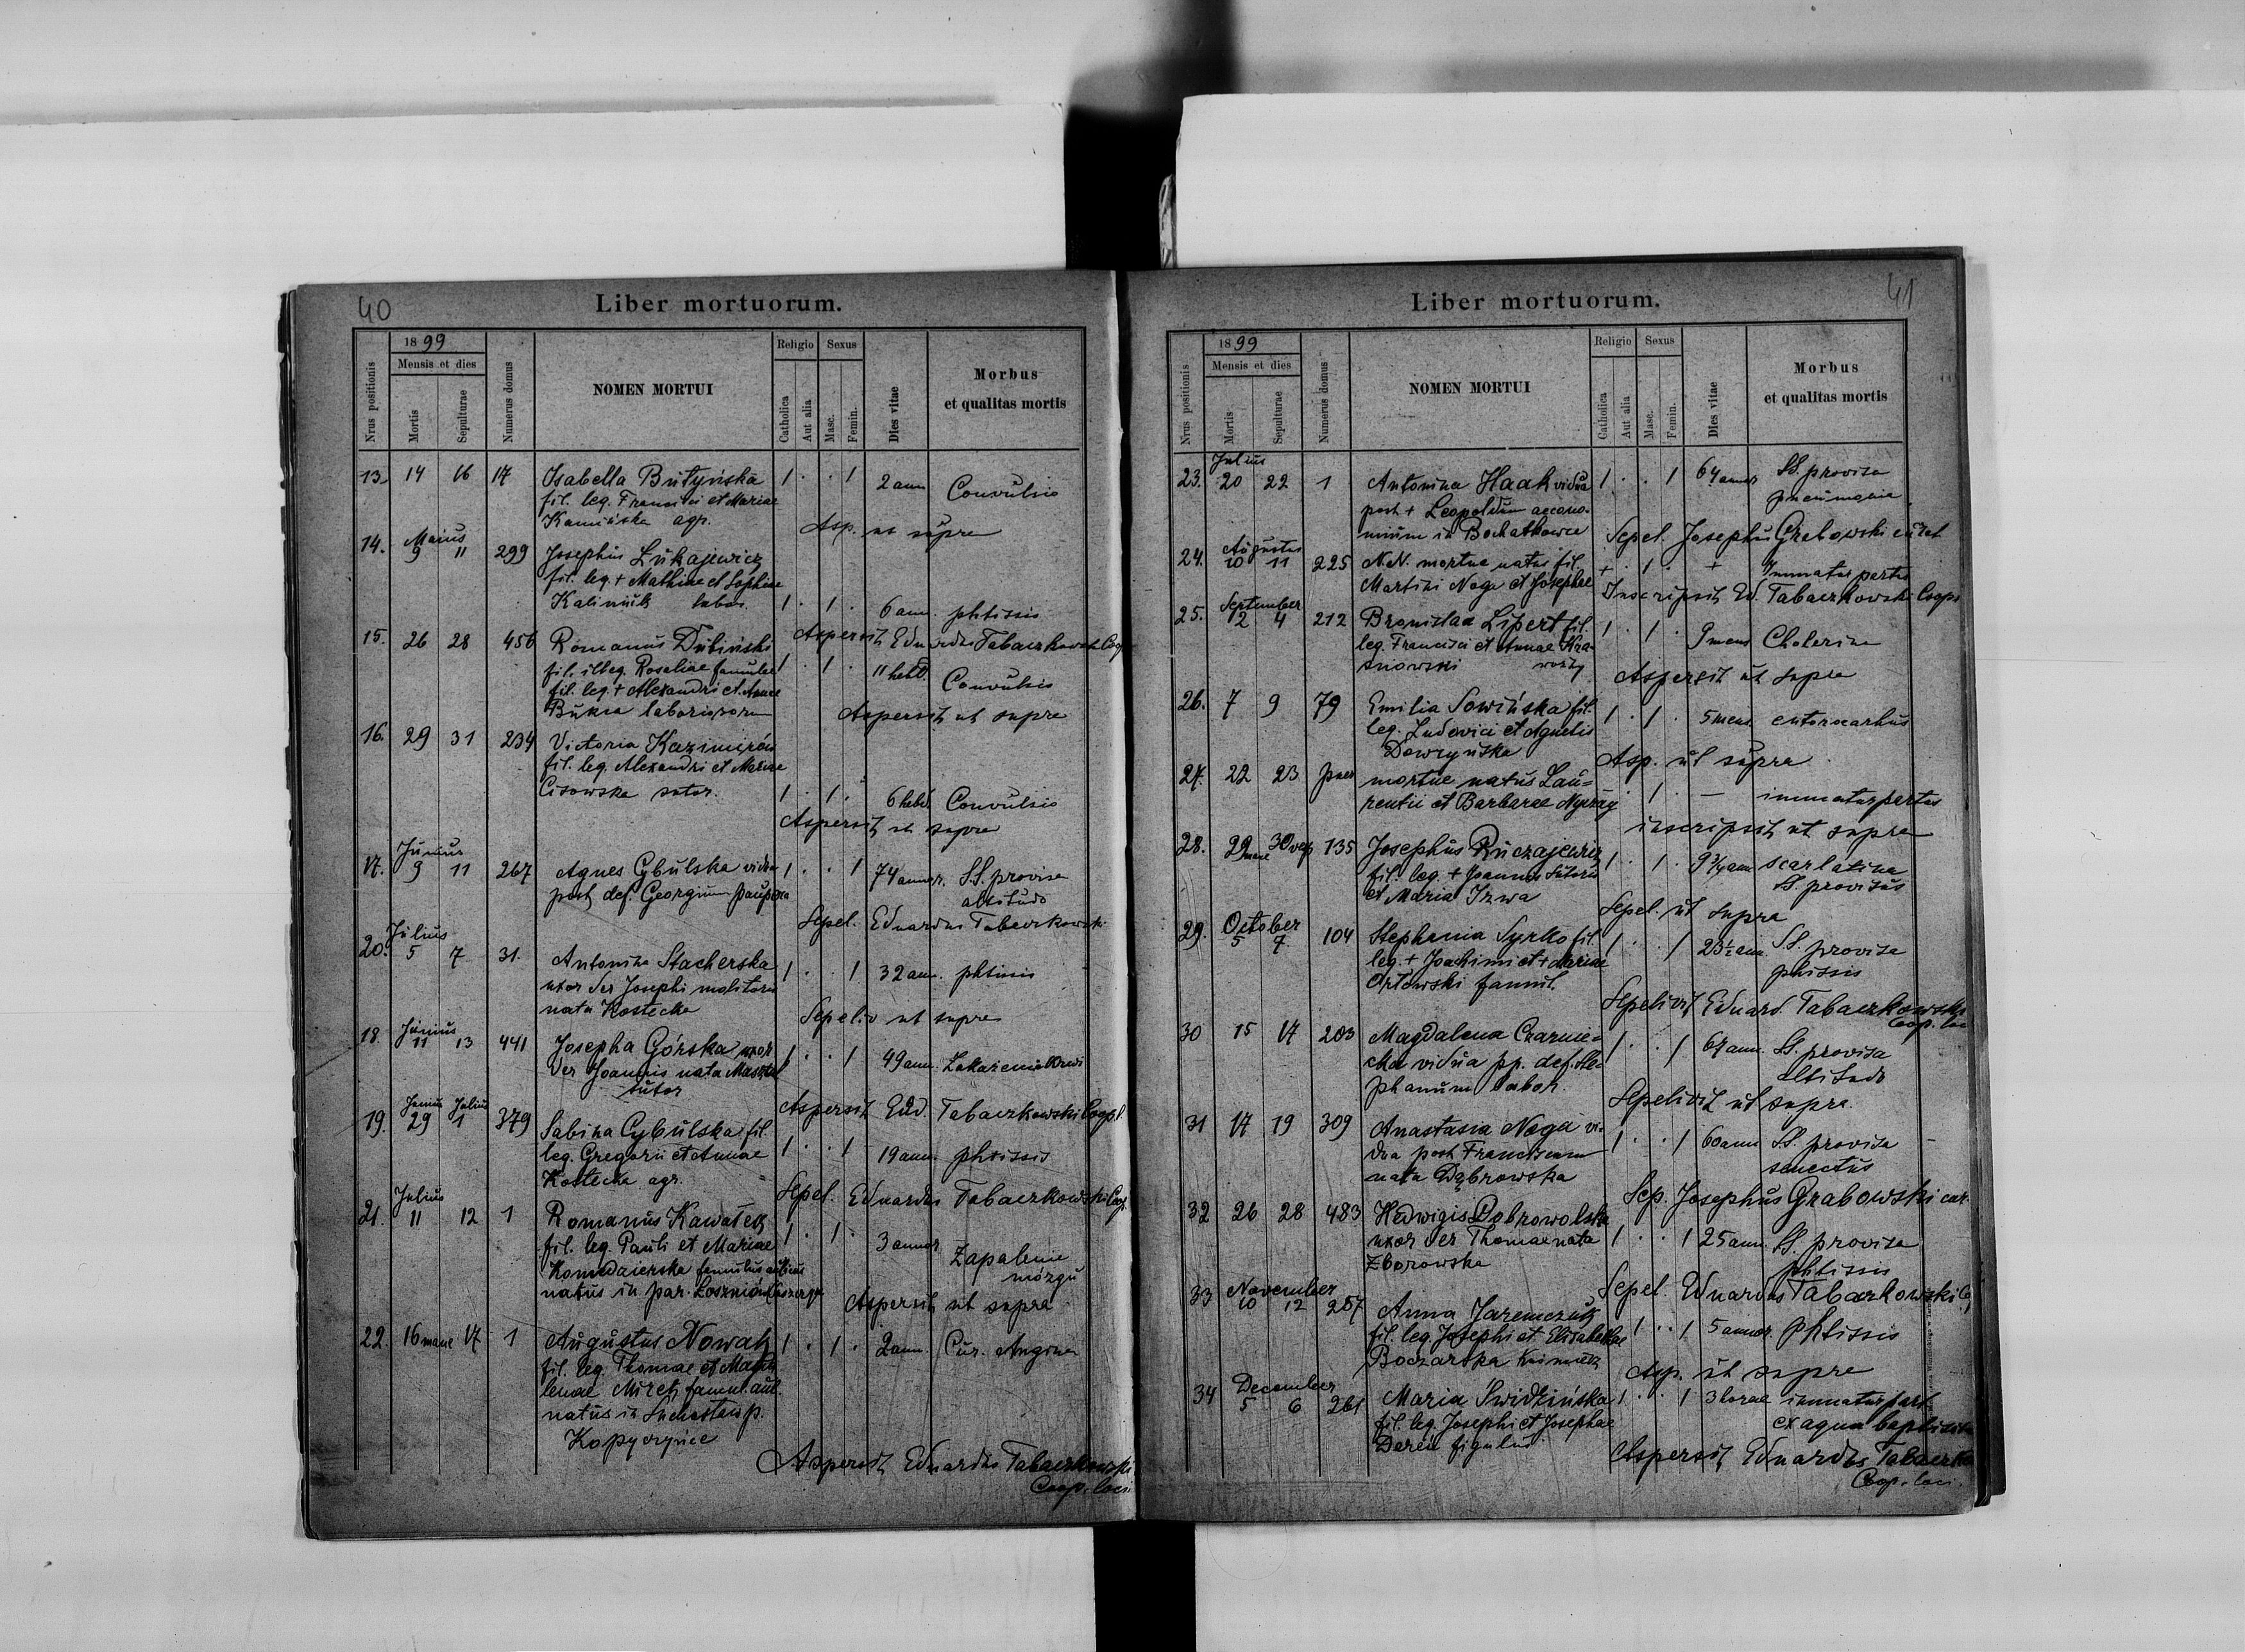 40
Liber mortuorum.
Nrus positionis
1899
Mensis et dies
Mortis
Sepulturae
Numerus domus
NOMEN MORTUI
Religio
Catholica
Aut alia
Sexus
Masc.
Femin.
Dies vitae
Morbus
et qualitas mortis
13. 14 16 17 Isabella Butyńska 1 . . 1 2 ann Convulsio
fil. leg. Francisci et Mariae
Kamińska agr.
Asp. ut supra
14. Maius
9 11 299 Josephus Łukajewicz
fil. leg. + Mathiae et Sophiae
labor. 1 . 1 . 6 ann. phtissis
Aspersit Eduardus Tabaczkowski Coop
15. 26 28 456 Romanus Dubiński
fil. illeg. Rosaliae famulae 1 . 1 . 11 hebd. Convulsio
fil. leg. + Alexandri et Annae
Buksa
Aspersit ut supra
16. 29 31 234 Victoria
fil. leg. Alexandri et Mariae
Cisowska sutor. 1 . 1 . 6 hebd. Convulsio
Aspersit ut supra
17. Junius
9 11 267 Agnes Cybulska vidua 1 . . 1 74 annor. S.S. provisa
post def. Georgium
Sepel. Eduardus Tabaczkowski
20. Julius
5 7 31. Antonina Stacherska 1 . . 1 32 ann. phtissis
uxor der Josephi molitoris
nata Kostecka
ut supra
18. Junius
11 13 441 Josepha Górska uxor 1 . . 1 49 ann. Zakażenie krwi
der Joannis nata
sutor
Aspersit Ed. Tabaczkowski Coop. l.
19. Junius Julius
29 1 379 Sabina Cybulska fil.
leg. Gregorii et Annae 1 . . 1 19 ann. phtissis
Kostecka agr.
Sepel. Eduardus Tabaczkowski Coop.
21. Julius
11 12 1 Romanus Kawałek
fil. leg. Pauli et Mariae 1 . 1 . 3 annor Zapalenie
mózgu
natus in par.
Aspersit ut supra
22. 16 mane 17 1 Augustus Nowak 1 . 1 . 2 ann. Angina
fil. leg. Thomae et Magda
lenae famul. aul.
natus in p.
Kopyczyńce
Aspersit Eduardus Tabaczkowski
Coop. loci
41
Liber mortuorum.
Nrus positionis
1899
Mensis et dies
Mortis
Sepulturae
Numerus domus
NOMEN MORTUI
Religio
Catholica
Aut alia
Sexus
Masc.
Femin.
Dies vitae
Morbus
et qualitas mortis
23. Julius
20 22 1 Antonina Haak vidua 1 . . 1 64 annor SS. provisa
pneumonia
post + Leopoldum aecono-
mum in Bohatkowce
Sepel. Josephus Grabowski
24. Augustus
10 11 225 N.N. mortue natus fil. + . 1 . +
Martini Noga et Josephae
Inscripsit Ed. Tabaczkowski Coop.
25. September
2 4 212 Bronislaa Lipert fil.
leg. Francisci et Annae Kra- 1 . 1 . 9 mens Cholerina
snowski woźny
Aspersit ut supra
26. 7 9 79 Emilia Sowińska fil.
leg. Ludovici et Agnetis 1 . 1 . 5 mens
Asp. ut supra
27. 22 23 puer mortue natus Lau-
rentii et Barbarae . 1 . –
inscripsit ut supra
28. 29 mane 30 vesp 135 Josephus
fil. leg. + Joannis sutoris 1 . 1 . 9 3/4 ann scarlatina
SS. provisus
et Maria
Sepel. ut supra
29. October
5 7 104 Stephania Syrko fil.
leg. + Joachimi et + Mariae 1 . . 1 23 1/2 ann SS. provisa
phtissis
Orłowski famul.
Sepelivit Eduard. Tabaczkowski
Coop. loc
30 15 17 203 Magdalena Czarnie-
cka vidua pp. def. Ste- 1 . . 1 67 ann. SS. provisa
phanum labor.
Sepelivit ut supra.
31 17 19 309 Anastasia Noga vi-
dua post Franciscum 1 . . 1 60 ann SS. provisa
senectus
nata Dąbrowska
Sep. Josephus Grabowski cur.
32 26 28 483 Hedwigis Dobrowolska
uxor der Thomae nata 1 . . 1 25 ann SS. provisa
phtissis
Zborowska
Sepel. Eduardus Tabaczkowski
33 November
10 12 257 Anna Jaremczuk
fil. leg. Josephi et Elisabethae 1 . . 1 5 annor. Phtissis
Boczarska
Asp. ut supra
34 December
5 6 261 Maria Świdzińska 1 . . 1 3 horae
fil. leg. Josephi et Josephae ex aqua
Dereń figulus
Aspersit Eduardus Tabaczko
Coop. loci.